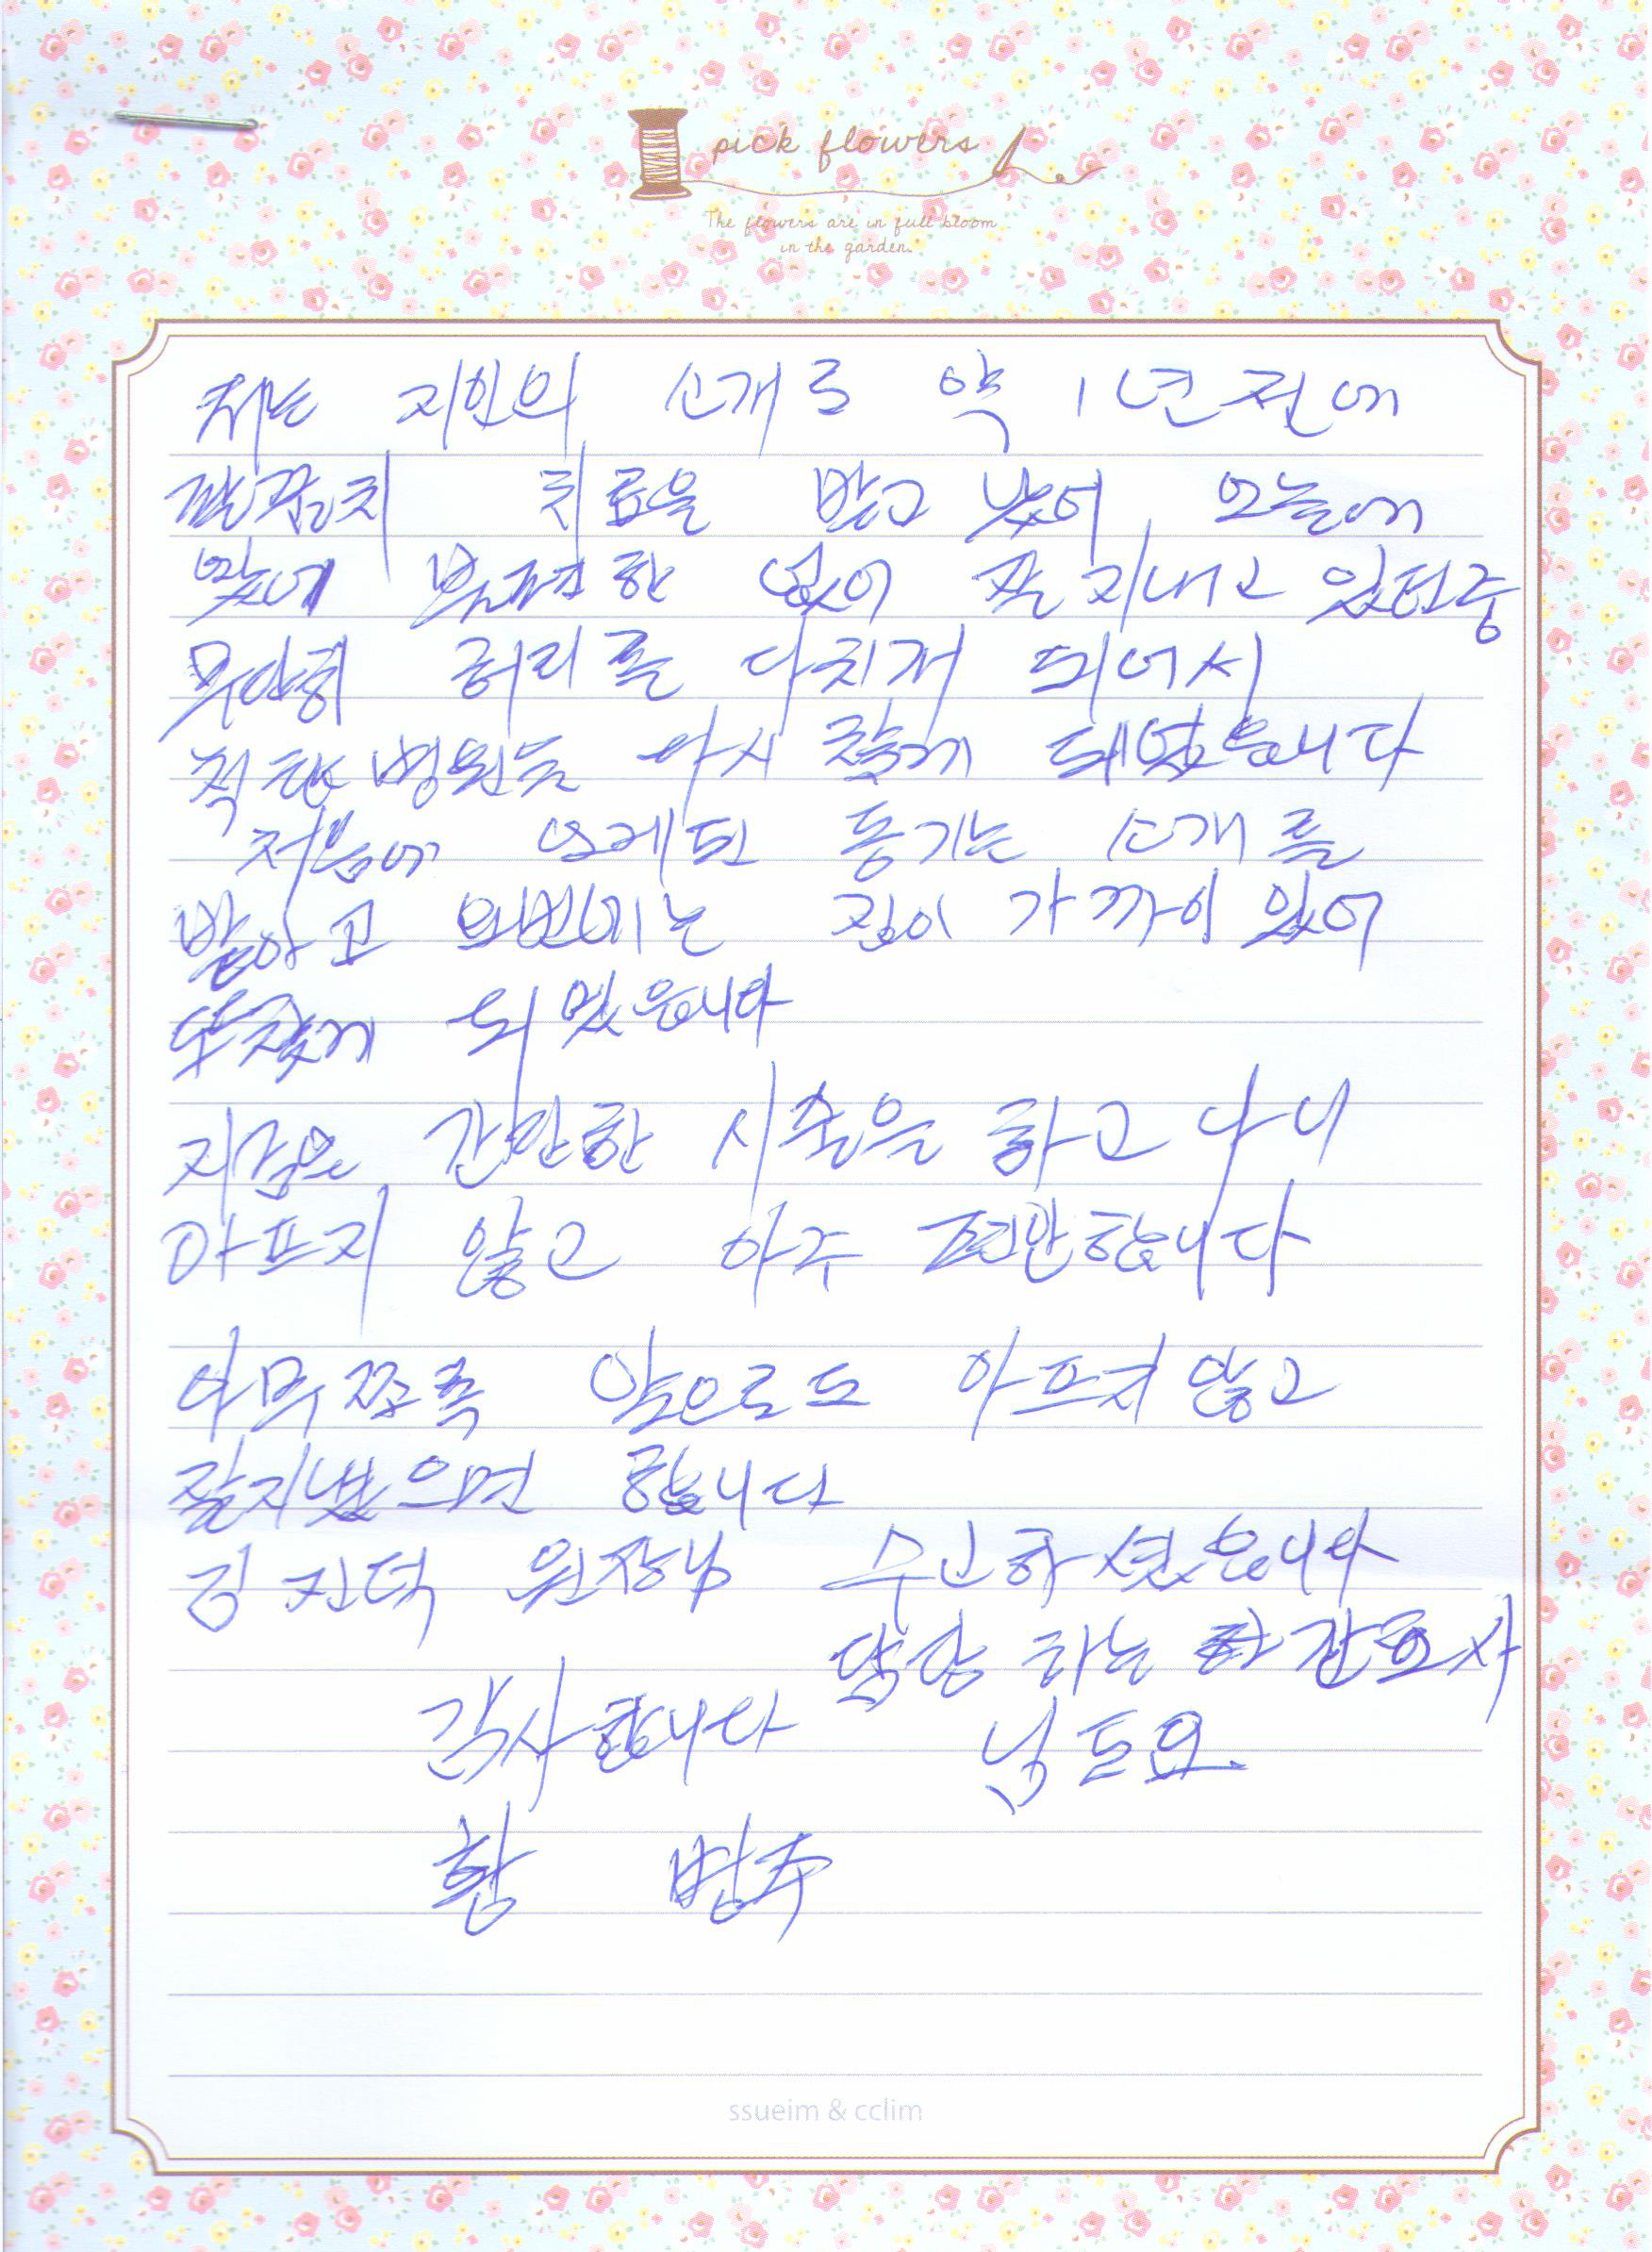 pick flowers
The flowers are in full bloom
in the garden.
저는 지인의 소개로 약 1년전에
팔꿈치 치료을 받고 낳어 오늘에
불편한 없이 잘 지내고 있던중
우연히 허리를 다치게 되어서
병원을 다시 찾게 돼었읍니다
처음에 오게된 동기는 소개를
받았고 이번에는 집이 가까이 있어
또 찾게 되었읍니다
지금은 간단한 시술을 하고 나니
아프지 않고 아주 편안합니다
아무쪼록 앞으로도 아프지 않고
잘지냈으면 합니다
김진덕 원장님 수고하셨읍니다
담당 하는 간호사
감사합니다 님도요.
황 범주
ssueim & cclim